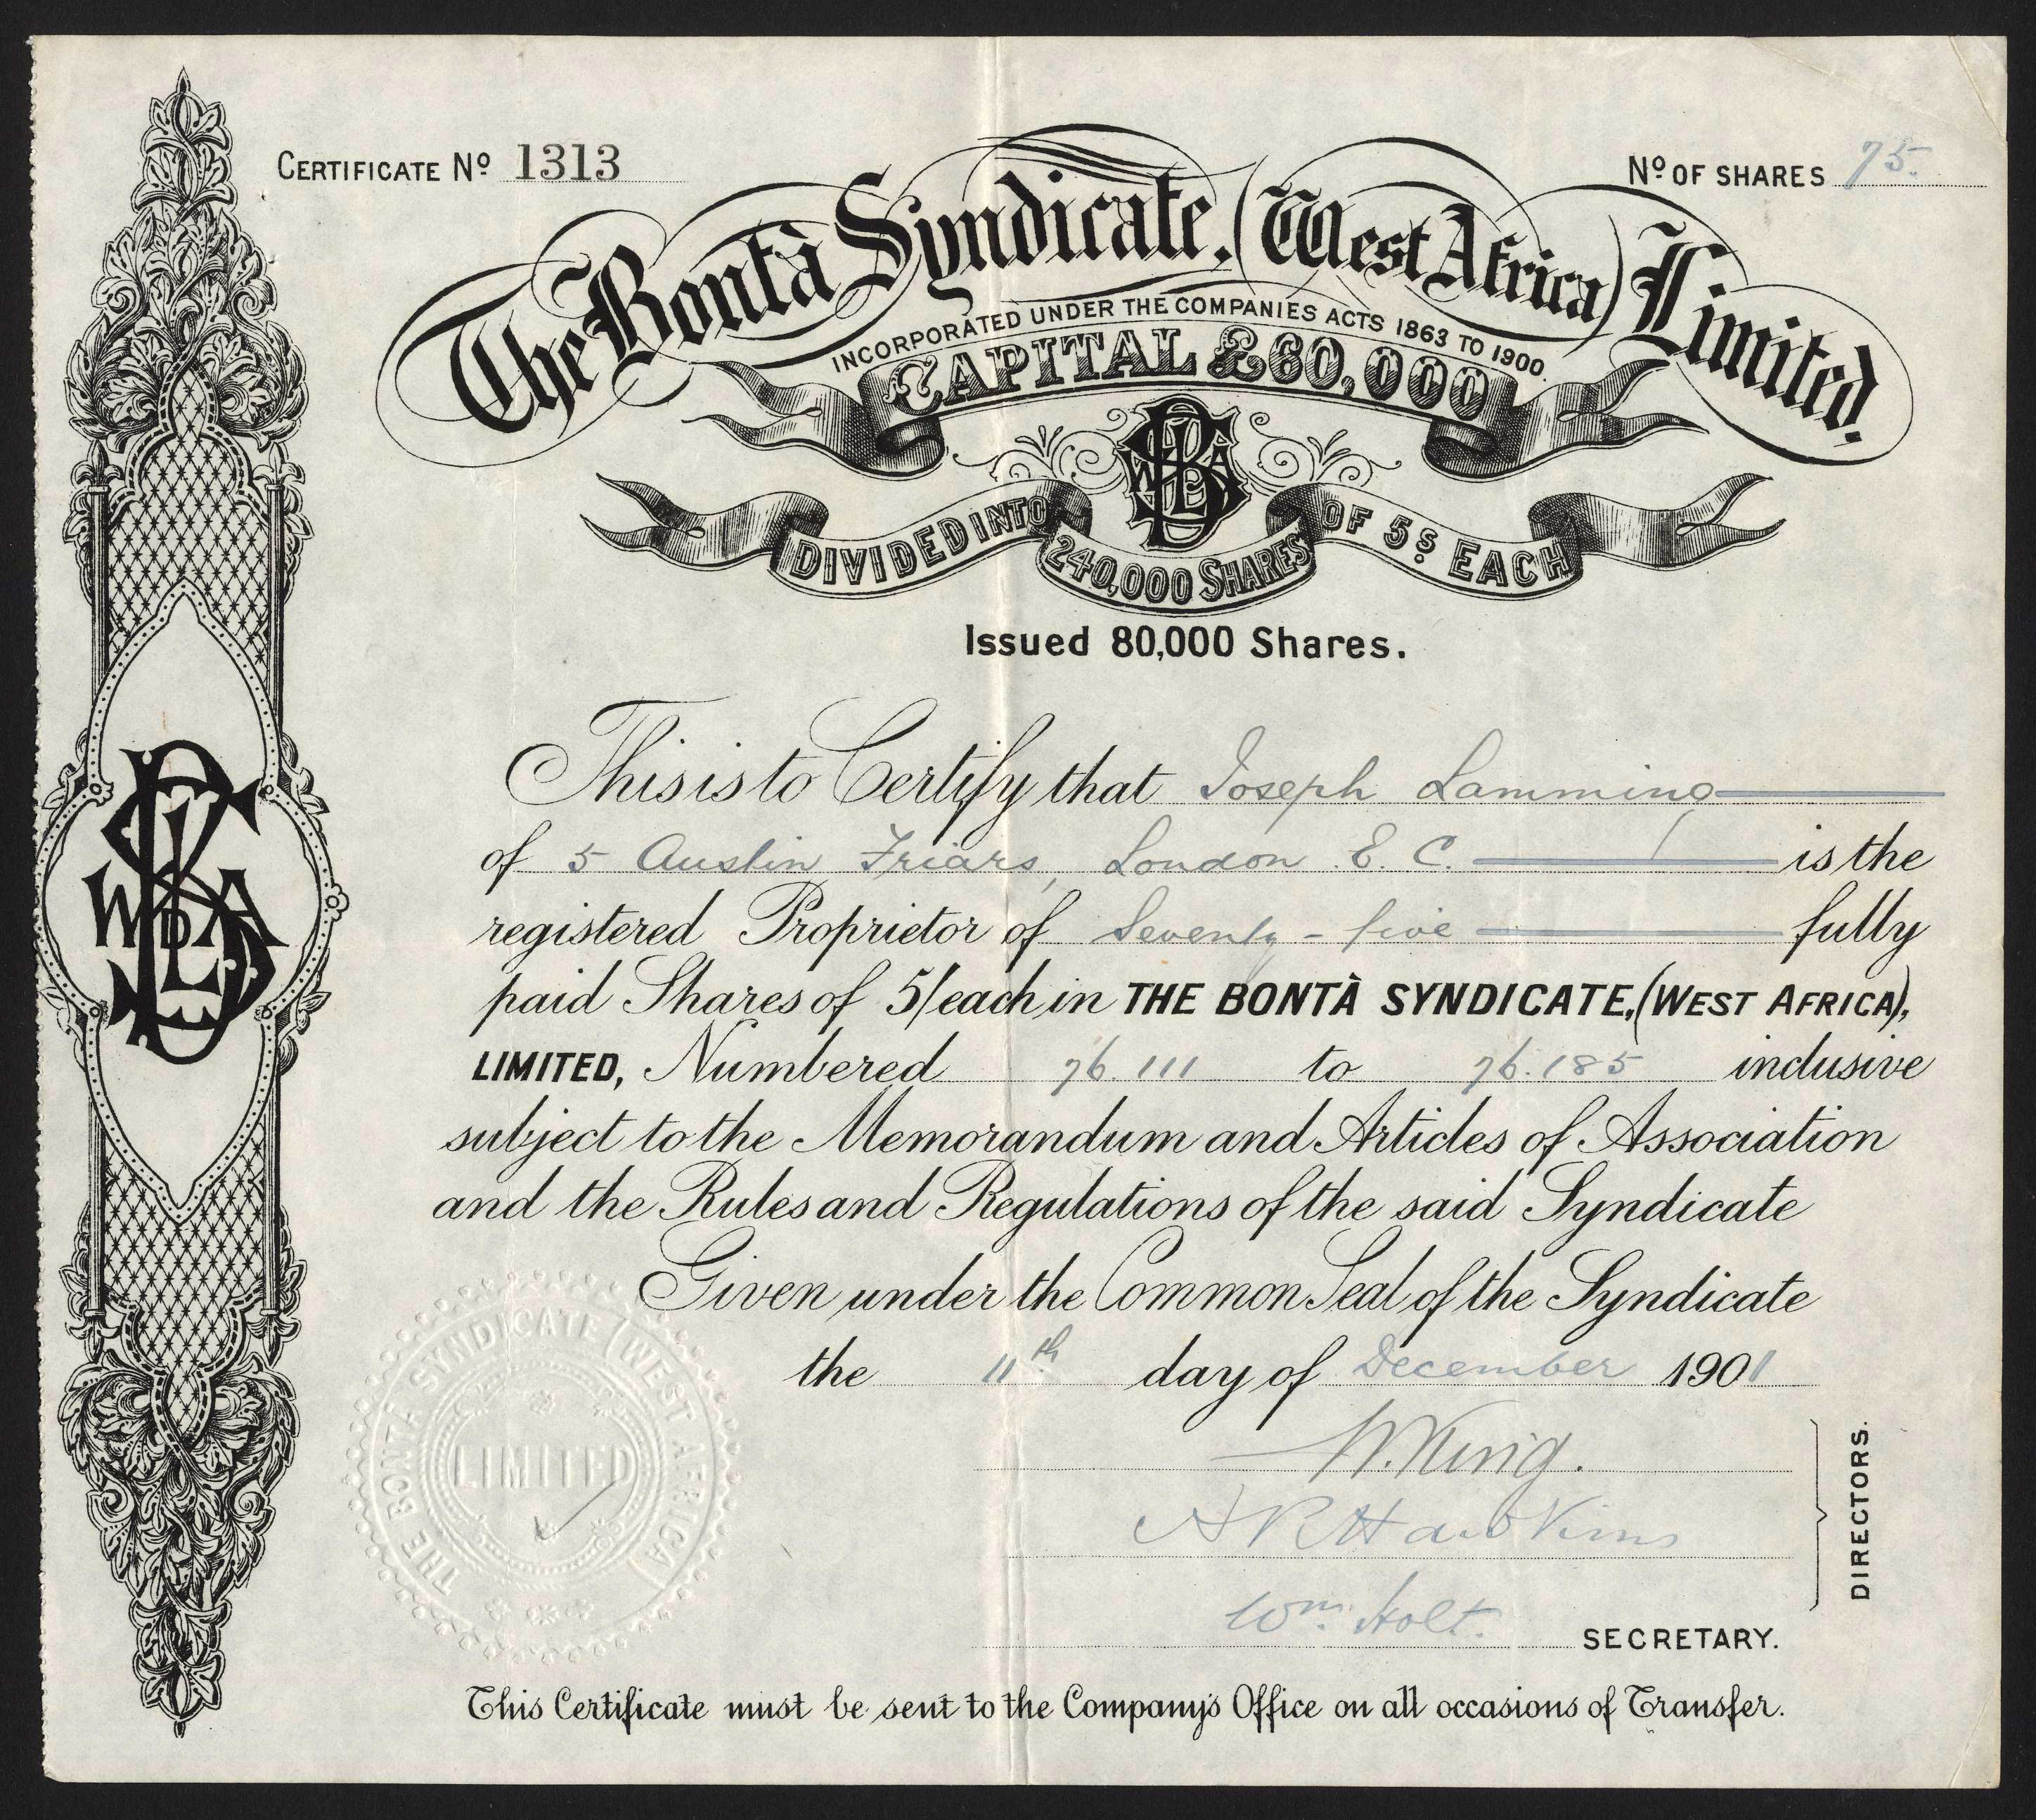 CERTIFICATE Nº 1313
Nº OF SHARES 75.
The Bontà Syndicate, (West Africa) Limited.
INCORPORATED UNDER THE COMPANIES ACTS 1863 TO 1900.
CAPITAL £60,000
DIVIDED INTO 240,000 SHARES OF 5S EACH
Issued 80,000 Shares.
This is to Certify that Joseph Lamming
of 5 Austin Friars, London E. C. is the
registered Proprietor of Seventy-five fully
paid Shares of 5/ each in THE BONTÀ SYNDICATE, (WEST AFRICA),
LIMITED, Numbered 76.111 to 76.185 inclusive
subject to the Memorandum and Articles of Association
and the Rules and Regulations of the said Syndicate
Given under the Common Seal of the Syndicate
the 11th day of December 1901
W. King.
A R Hawkins
DIRECTORS.
Wm. Holt. SECRETARY.
THE BONTA SYNDICATE (WEST AFRICA)
LIMITED
This Certificate must be sent to the Company's Office on all occasions of Transfer.